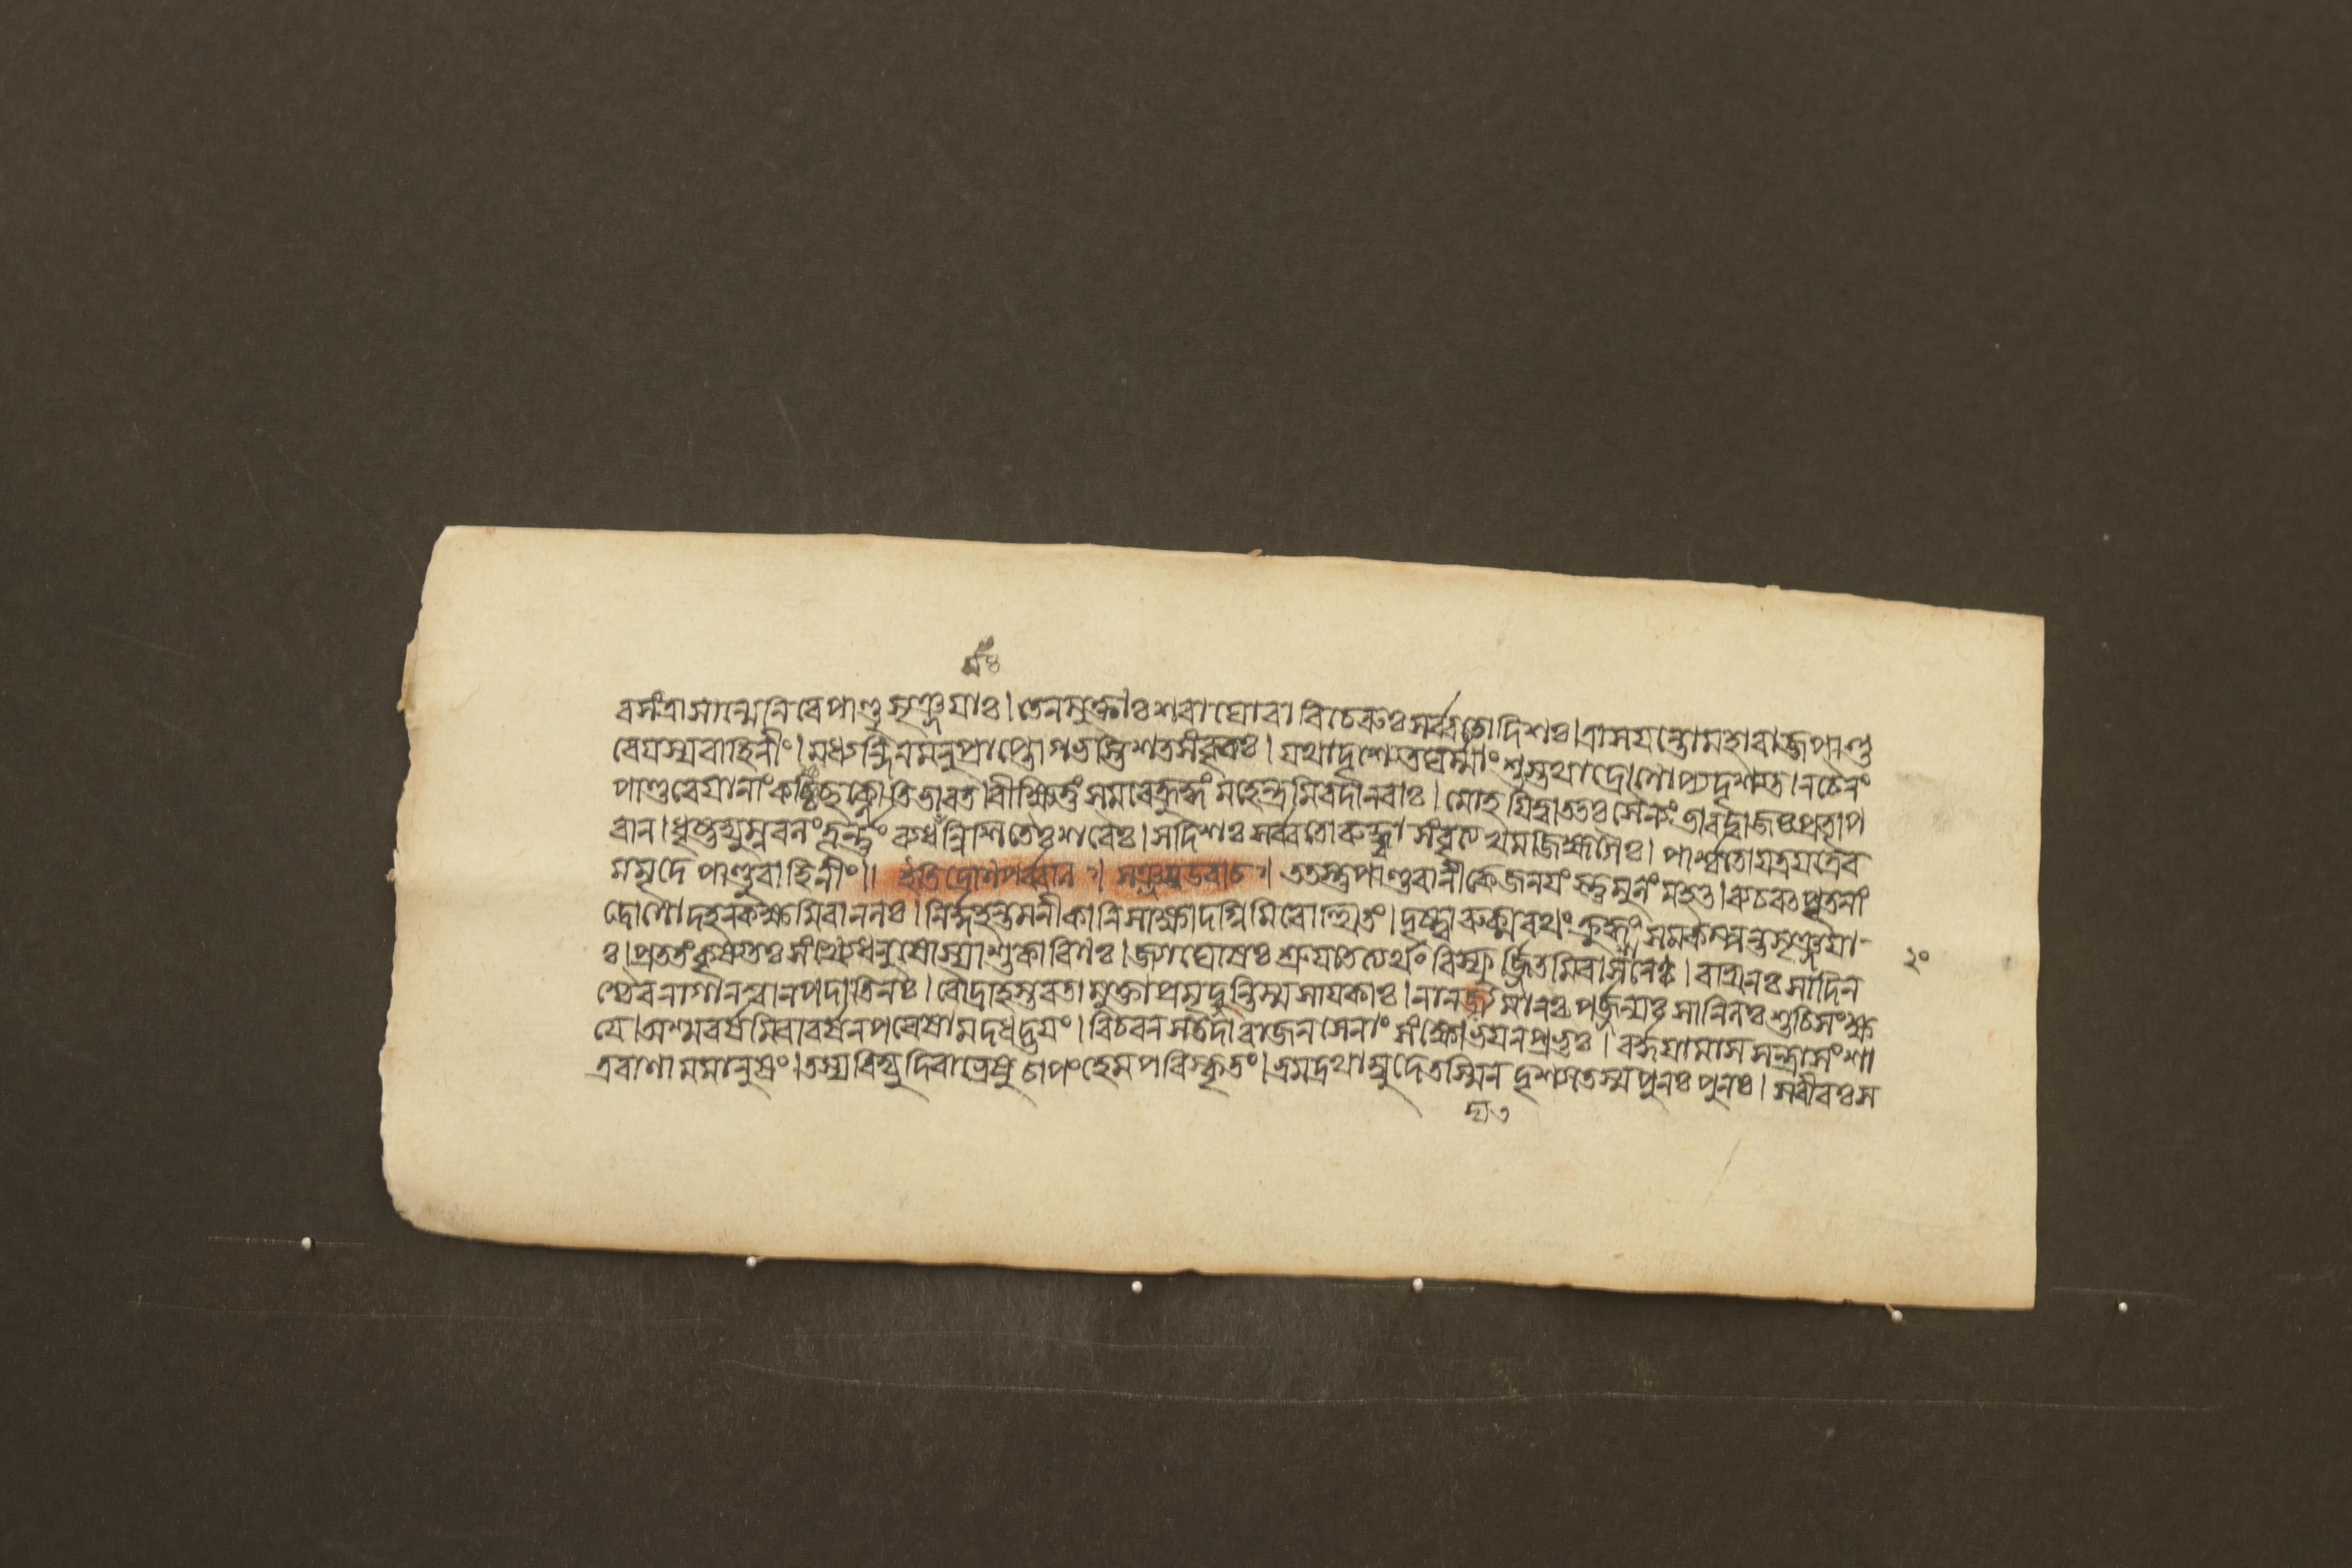 ব সংত্রাসান্মেনিরে পাণ্ডুসৃঞ্জয়াঃ। তেন মুক্তাঃ শরা ঘোরা বিচেরুঃ সর্ব্বতো দিশঃ। ত্রাসয়ন্তো মহারাজ পাণ্ড
বেয়স্য বাহিনীং। মধ্যন্দিনমনুপ্রাপ্তো গভস্তিশতসংবৃতঃ। যথা দৃশ্যেত ঘর্ম্মাংশুস্তথা দ্রোণোপ্যদৃশ্যত। ন চৈনং
পাণ্ডবেয়ানাং কশ্চিচ্ছক্নোতি ভারত। বীক্ষিতুং সমরে ক্রুদ্ধং মহেন্দ্রমিব দানবাঃ। মোহয়িত্বা ততঃ সৈন্যং ভারদ্বাজঃ প্রতাপ
বান। ধৃষ্টদ্যুম্নবলং তূর্ণং ব্যধমন্নিশিতৈঃ শরৈঃ। স দিশঃ সর্ব্বতো রুদ্ধ্বা সংবৃত্য খমজিহ্মগৈঃ। পার্শ্বতো যত্র তত্রৈব
মমৃদে পাণ্ডুবাহিনীং॥ ইতি দ্রোণপর্ব্বণি। সঞ্জয় উবাচ। ততস্তু পাণ্ডবানীকে জনয়ংস্তুমুলং মহৎ। ব্যচরৎ পৃতনাং
দ্রোণো দহন কক্ষমিবানলঃ। নির্দ্দহন্তমনীকানি সাক্ষাদগ্নিমিবোত্থিতং। দৃষ্ট্বা রুক্মরথং ক্রুদ্ধং সমকম্পন্ত সৃঞ্জয়া-
ঃ। প্রততং কৃষ্যতঃ সংখ্যে ধনুষোস্যাশুকারিণঃ। জ্যাঘোষঃ শ্রূয়তেত্যর্থং বিস্ফূর্জ্জিতমিবাশনেঃ। রথিনঃ সাদিন
শ্চৈব নাগানশ্বান পদাতিনঃ। রৌদ্রা হস্তবতা মুক্তা প্রমৃদ্নন্তি স্ম সায়কাঃ। নানদ্যমানঃ পর্জ্জন্যঃ সানিলঃ শুচিসংক্ষ
য়ে। অশ্মবর্ষমিবাবর্ষন পরেষামদধদ্ভয়ং। বিচরন স তদা রাজন সেনাং সংক্ষোভয়ন প্রভুঃ। বর্দ্ধয়ামাস সন্ত্রাসং শা
ত্রবাণামমানুষং। তস্য বিদ্যুদিবাভ্রেষু চাপং হেমপরিষ্কৃতং। ভ্রমদ্রথাম্বুদে তস্মিন দৃশ্যতে স্ম পুনঃ পুনঃ। স বীরঃ স
২০